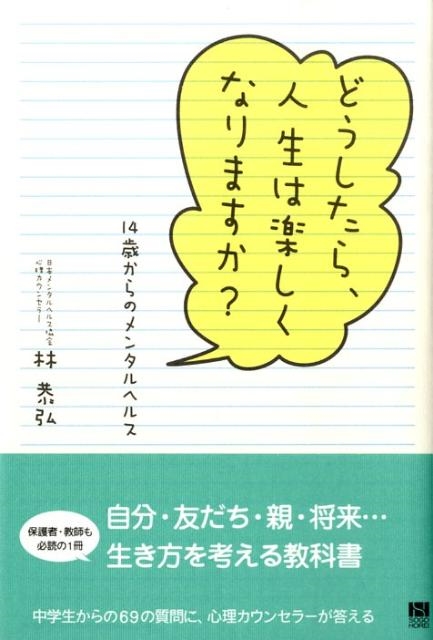 どうしたら、
人生は楽しく
なりますか?
14歳からのメンタルヘルス
日本メンタルヘルス協会
心理カウンセラー
林 恭弘
保護者・教師も
必読の1冊
自分・友だち・親・将来…
生き方を考える教科書
中学生からの69の質問に、心理カウンセラーが答える
S
SOGO
HOREI